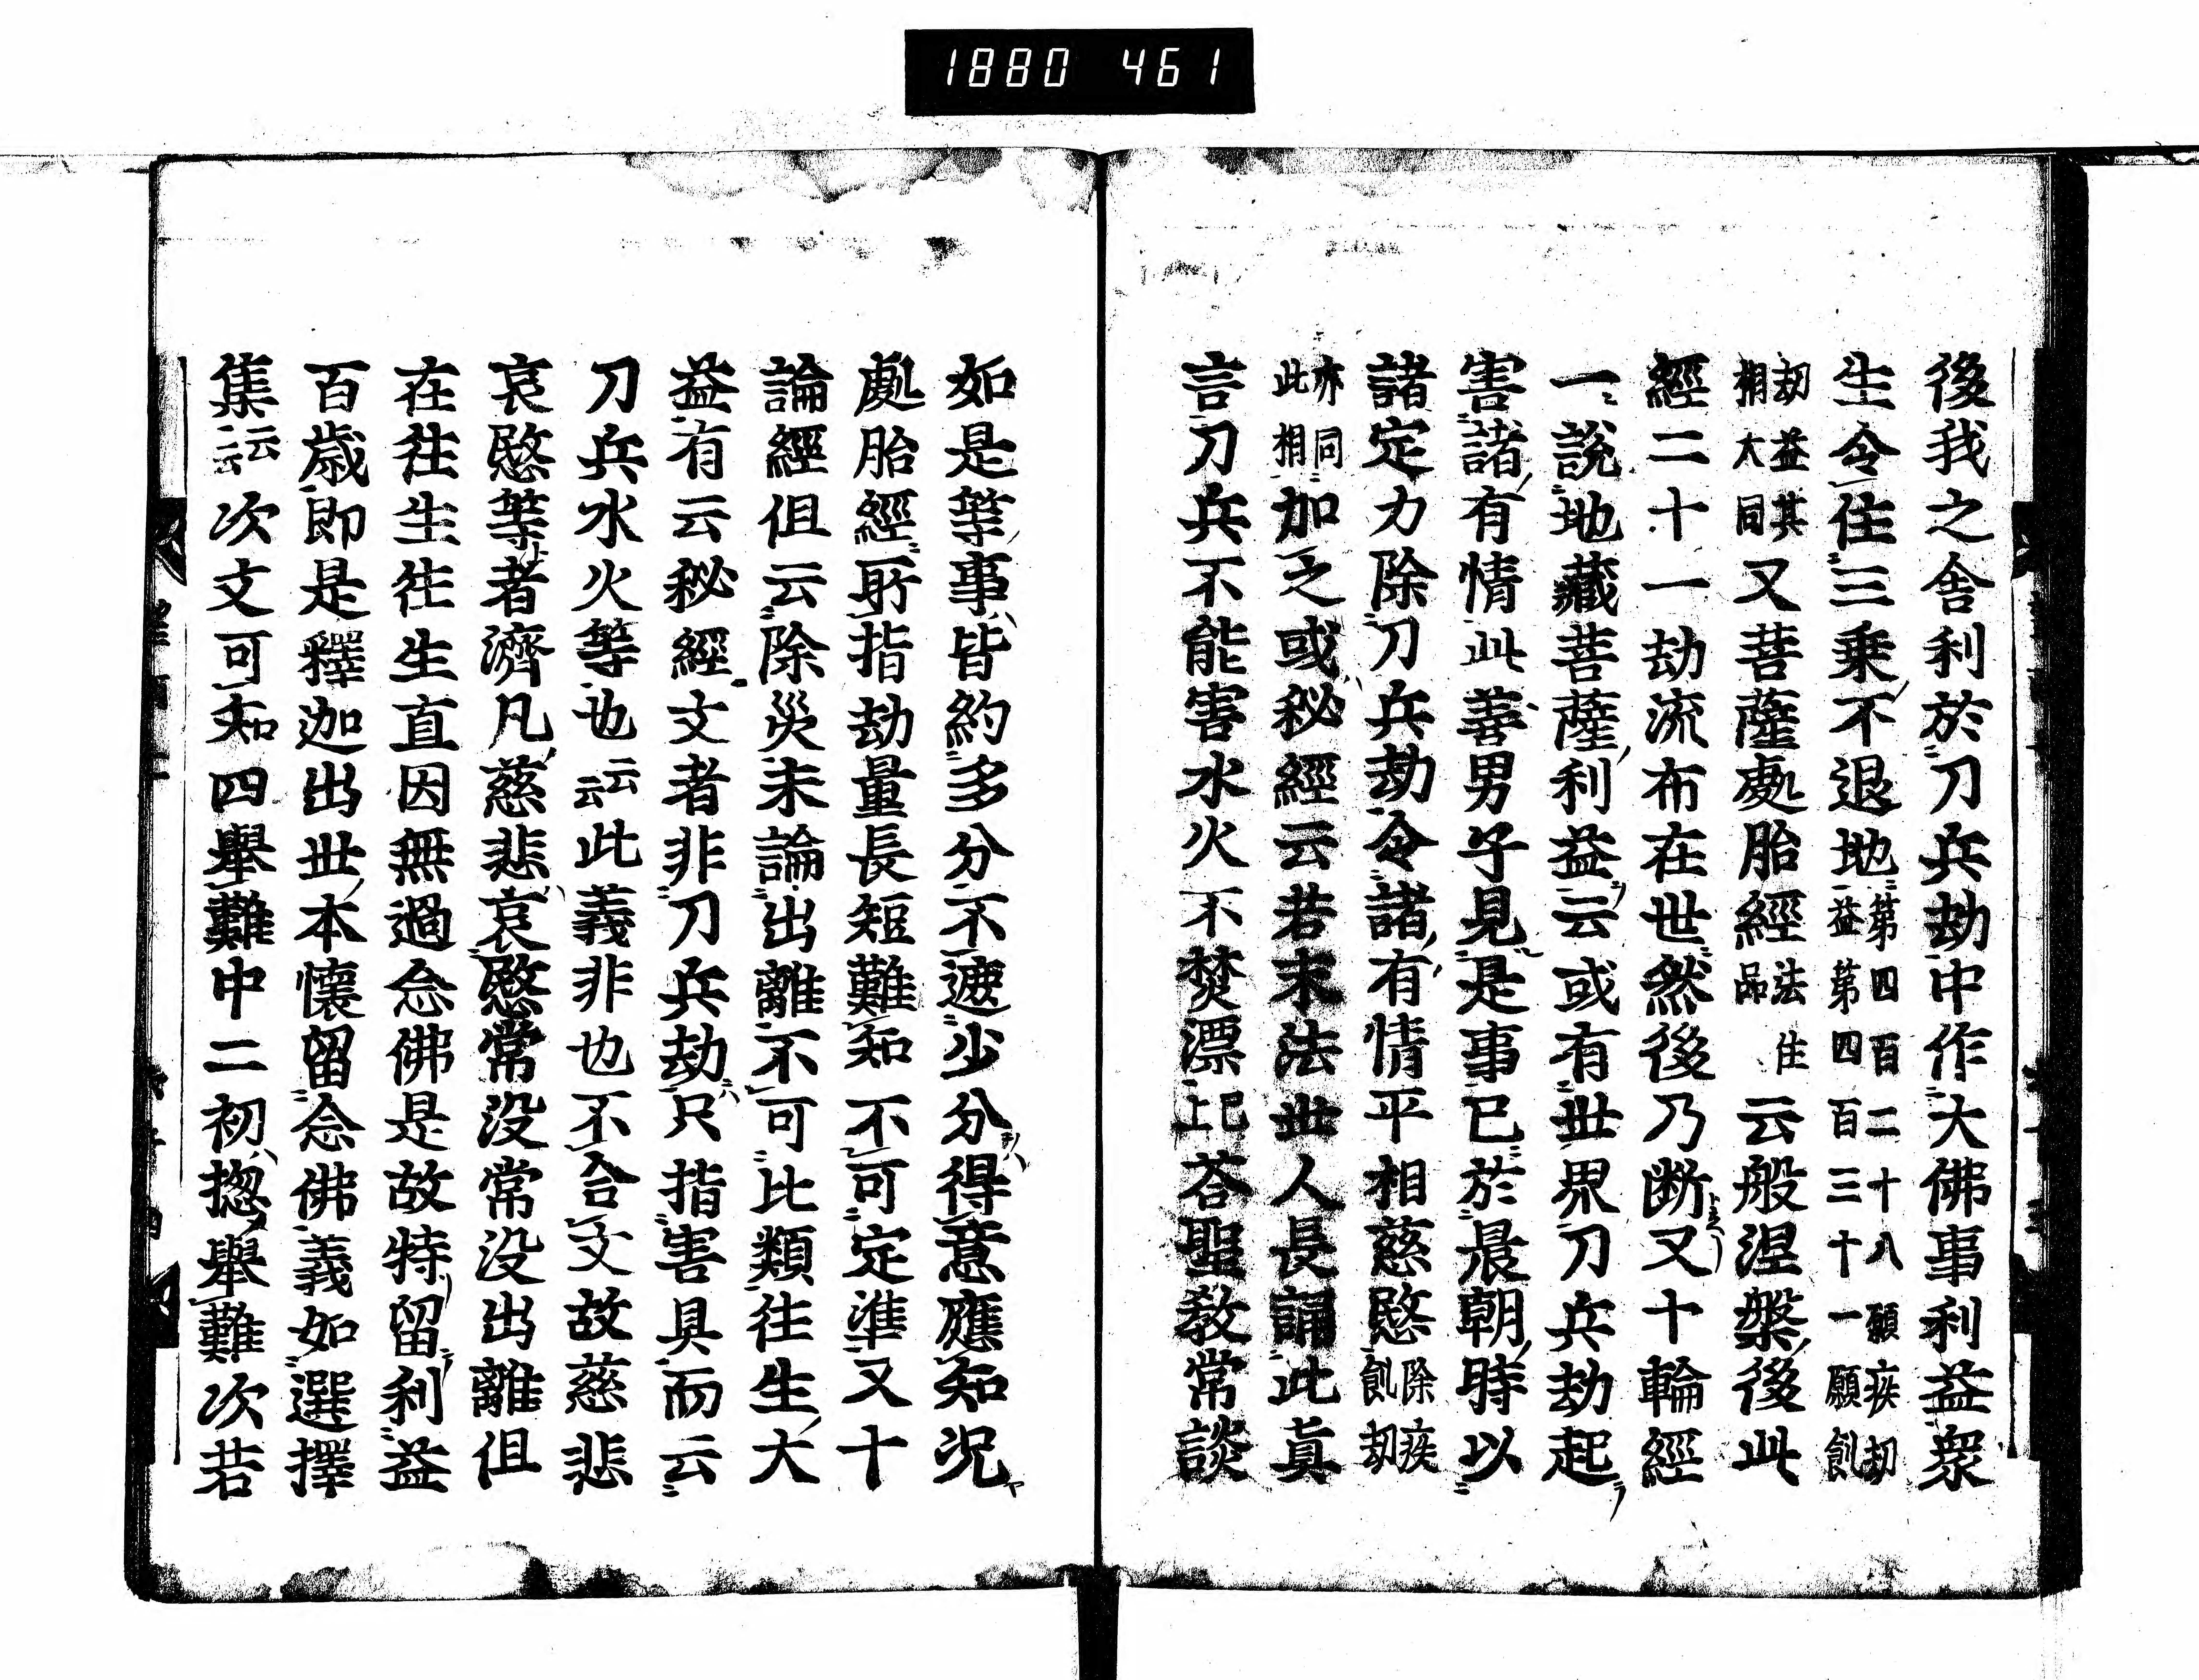 1880 461
後我之舎利於刀兵劫中作大佛事利益衆
生令住三乗不退地第四百二十八願疾劫益第四百三十一願飢
劫益其相大同又菩薩處胎經法住品云般涅槃後此
經二十一劫流布在世然後乃断又十輪經
一說地藏菩薩利益云或有世界刀兵劫起
害諸有情此善男子見是事已於晨朝時以
諸定力除刀兵劫令諸有情平相慈愍除疾飢劫
亦同此相加之或秘經云若末法世人長誦此真
言刀兵不能害水火不焚漂已上荅聖教常談
如是等事皆約多分不遮少分得意應知況
處胎經所指劫量長短難知不可定準又十
論經但云除災未論出離不可比類往生大
益有云秘經文者非刀兵劫只指害具而云
刀兵水火等也云云此義非也不合文故慈悲
哀愍等者濟凡慈悲哀愍常没常没出離但
在往生往生直因無過念佛是故特留利益
百歳即是釋迦出世本懷留念佛義如選擇
集云云次文可知四舉難中二初揔舉難次若